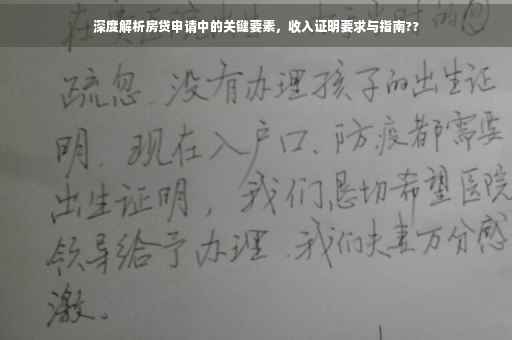 深度解析房贷申请中的关键要素，收入证明要求与指南??
疏忽、没有办理孩子的出生证
明、现在入户口、防疫都需要
出生证明，我们恳切希望医院
领导给予办理、我们夫妻万分感
激。